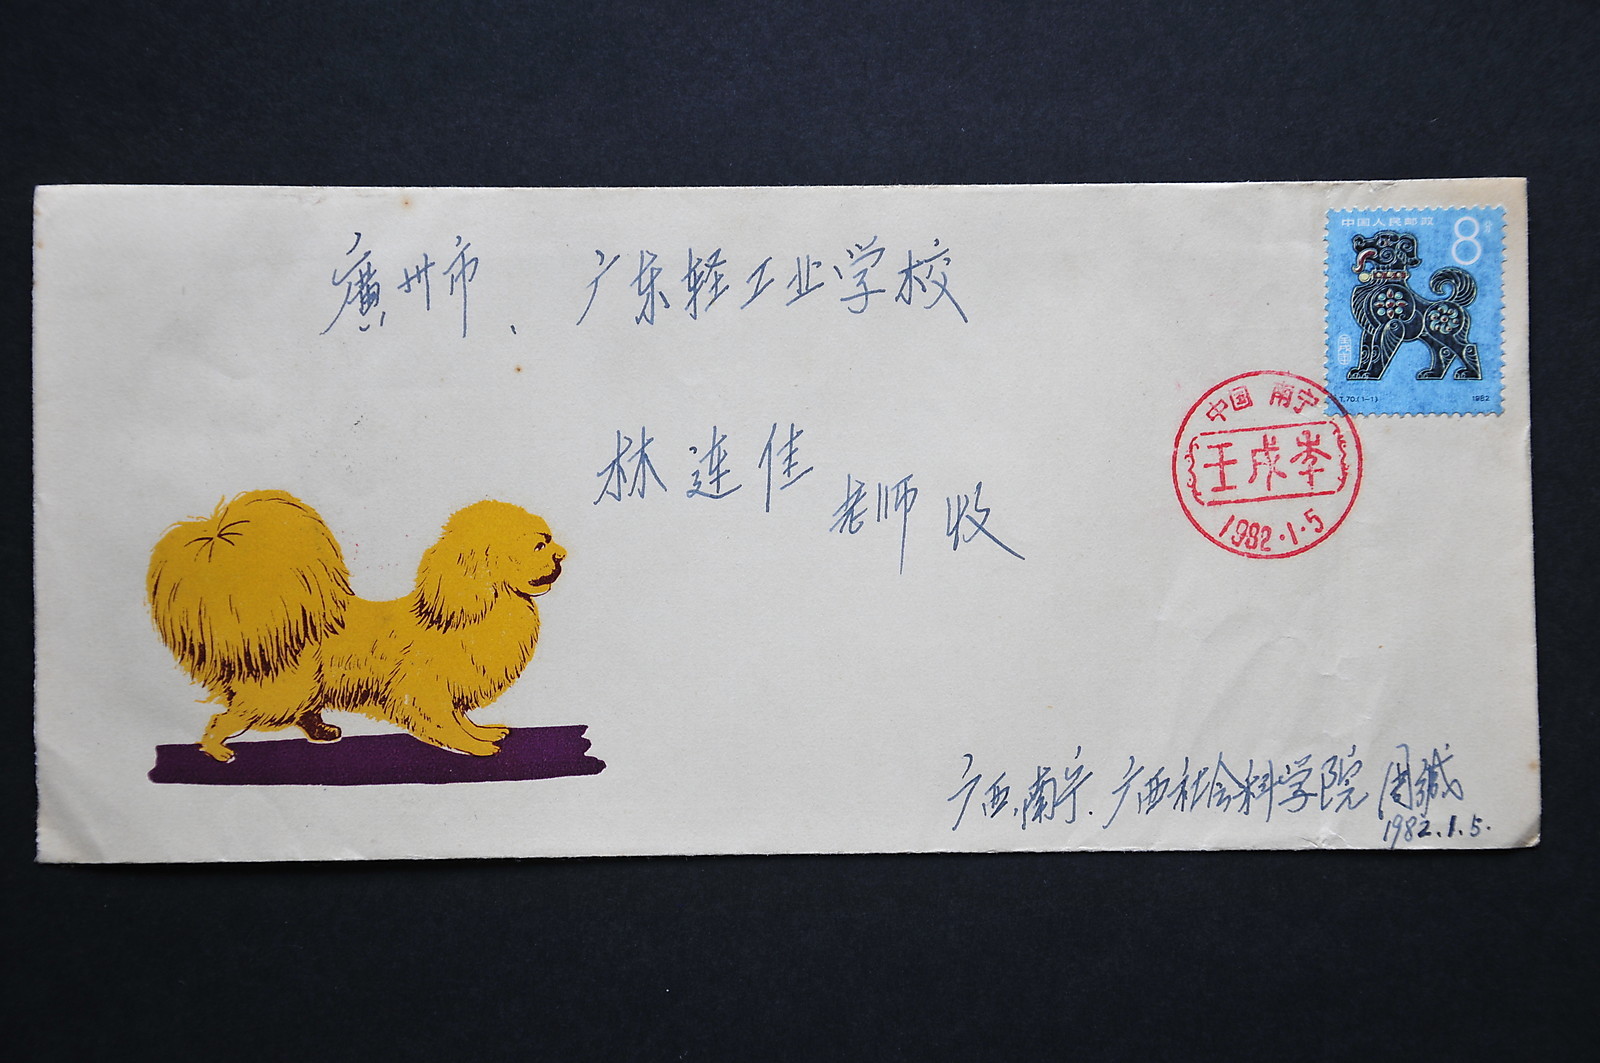 廣州市、广东轻工业学校
中国人民邮政
8分
壬戌年
T.70.(1-1) 1982
中国 南宁
壬戌年
1982.1.5
林连佳 老师 收
广西南宁.广西社会科学院 周缄
1982.1.5.